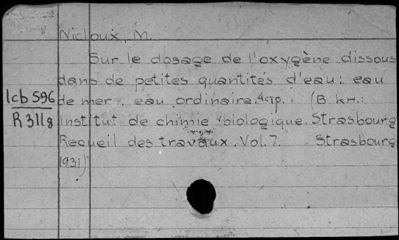 Nicloux, M.
Sur le dosage de l'oxygène dissous
dans de petites quantités d'eau: eau
Icb 596
de mer, eau ordinaire. 4°p. (В кн.:
R 311g
Institut de chimie biologique. Strasbourg
Recueil des travaux. Vol. 7. Strasbourg
1931)